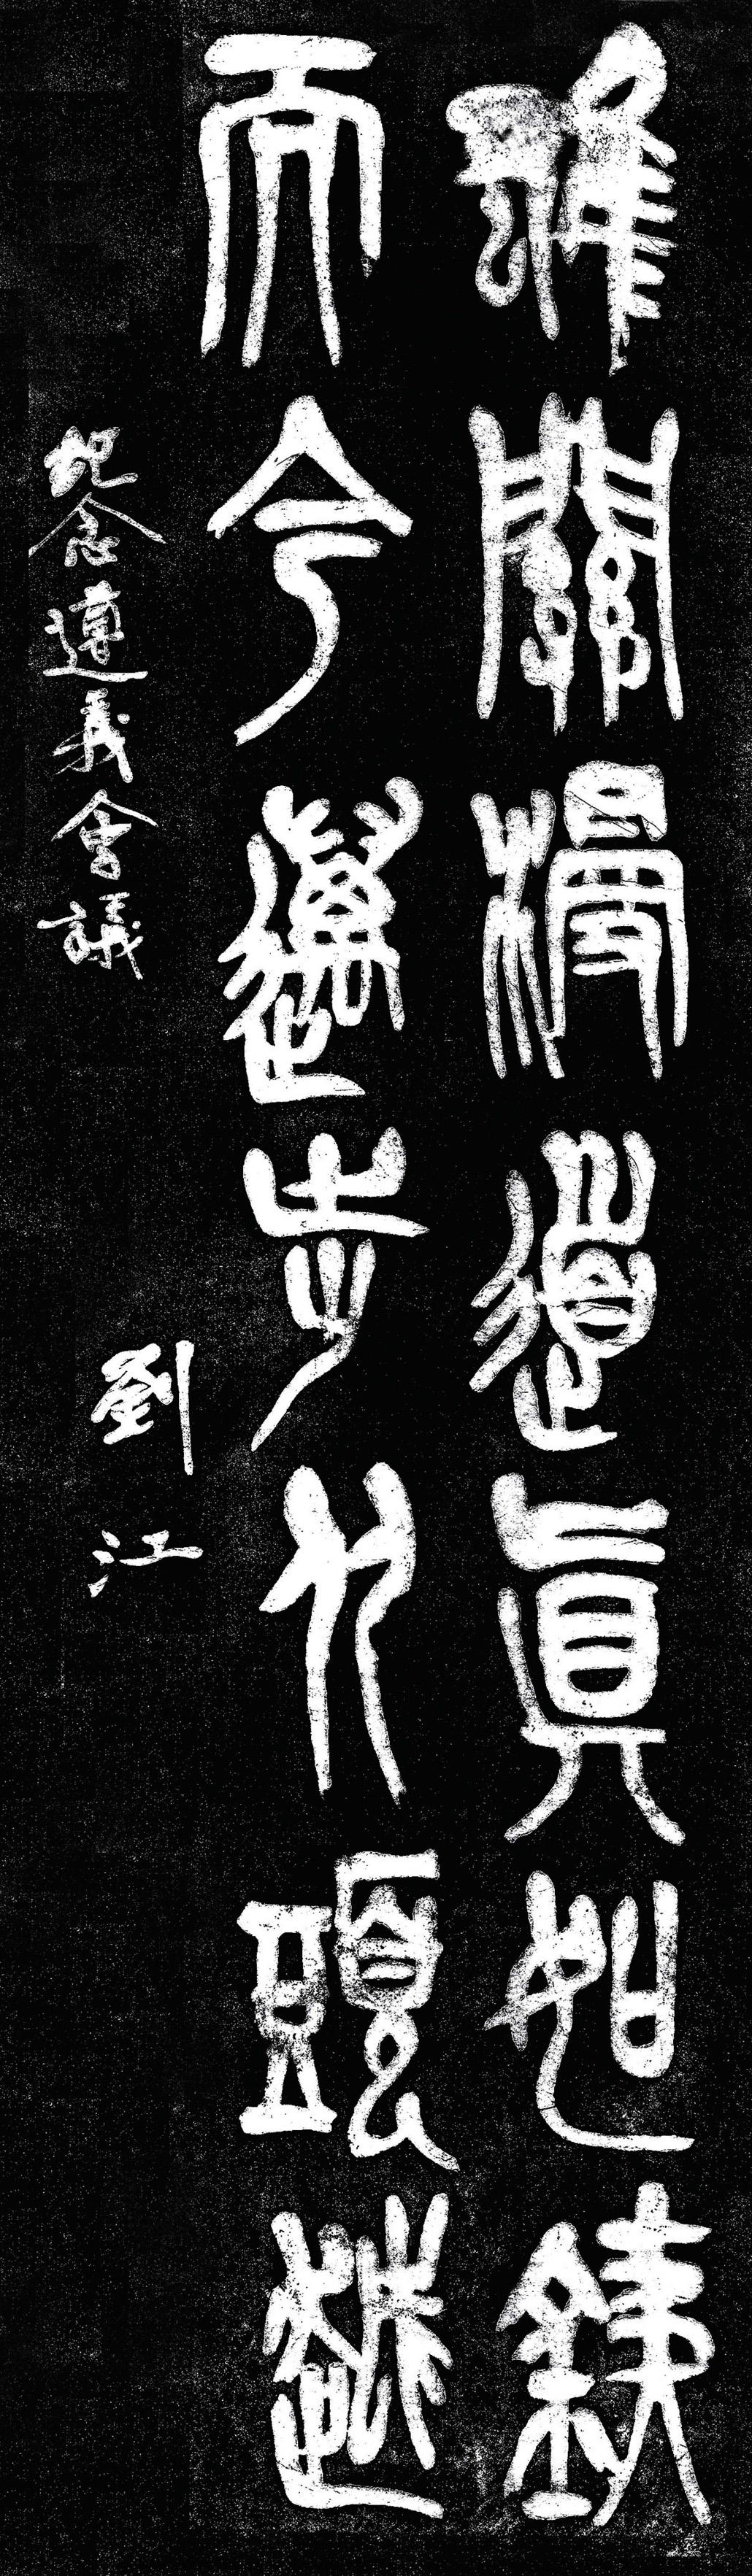 雄關漫道眞如銕
而今邁步从頭越
紀念遵義會議
劉江